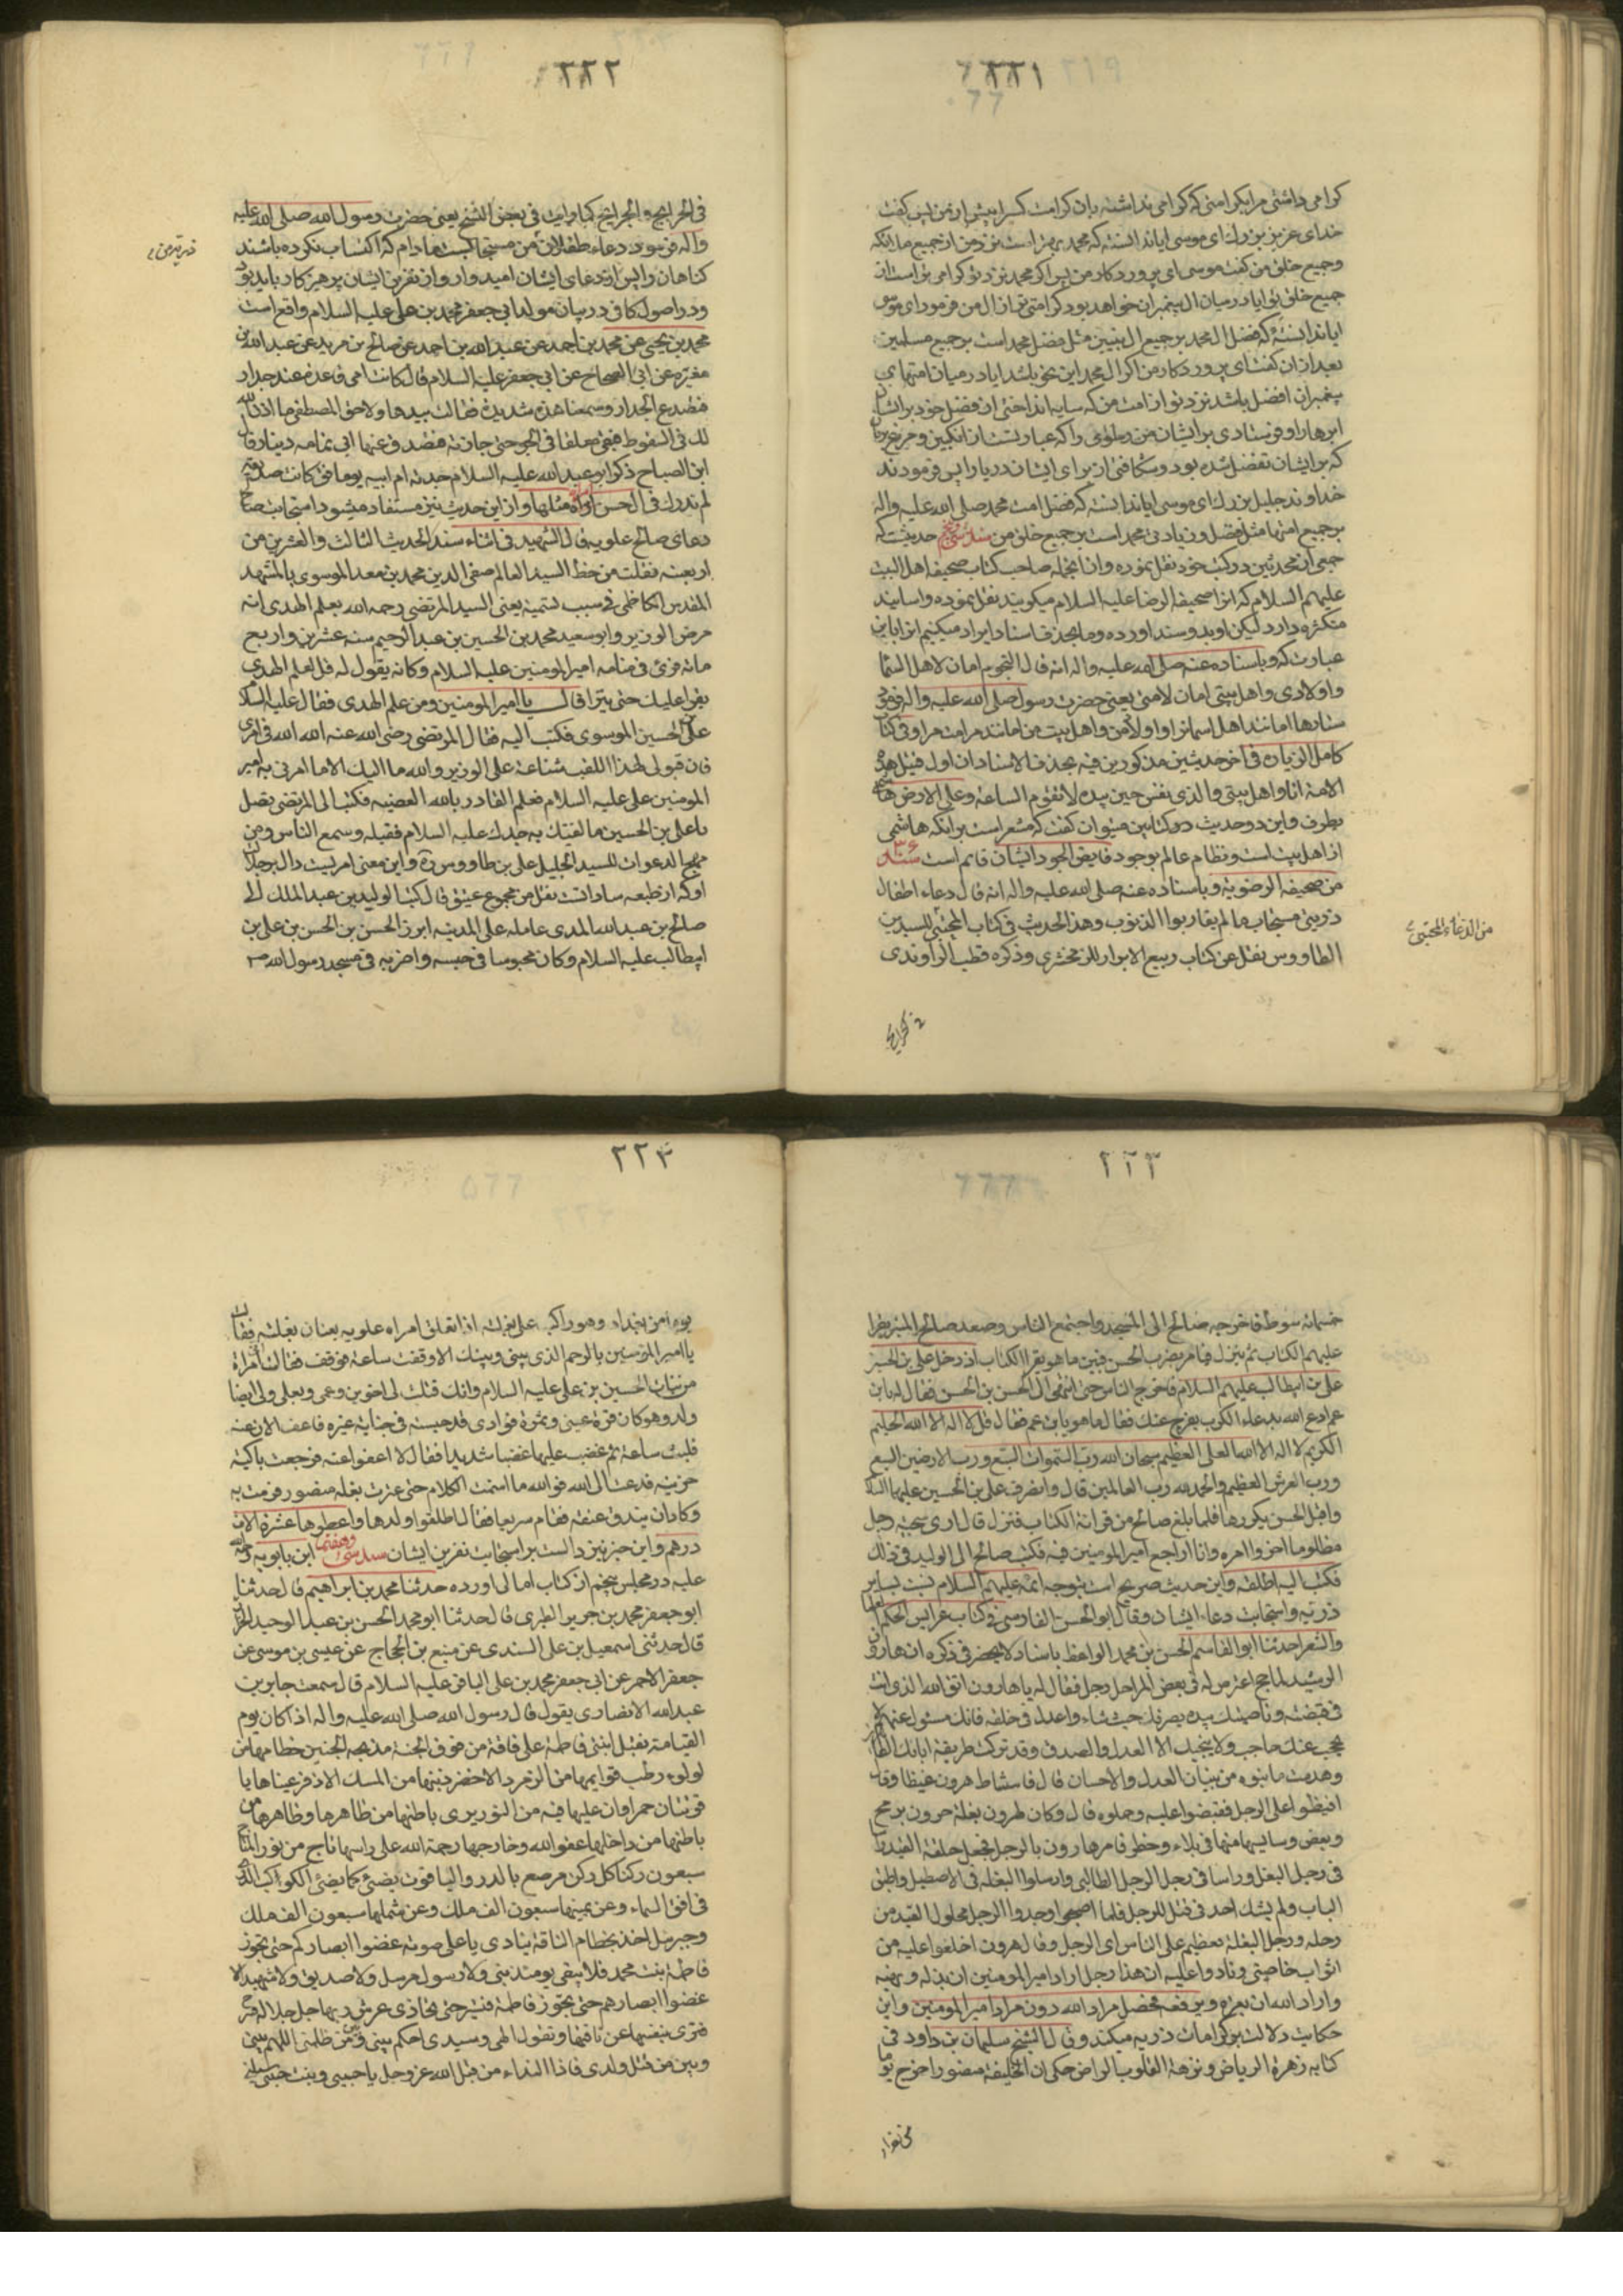 ۲۲۱
کرامی داشتی مرا بکرامتی که کرامی نداشتهٔ بان کرامت کسرا پیش از من پس کفت
خدای عزیز بزرك ای موسی ایا ندانستهٔ که محمد بهتر است نزد من از جمیع ملائکه
و جمیع خلق من کفت موسی ای پروردکار من پس اکر محمد نزد تو کرامی تر است از
جمیع خلق تو ایا در میان ال پیغمبران خواهد بود کرامی تر از ال من فرمود ای موسی
ایا ندانستهٔ که فضل ال محمد بر جمیع ال نبیین مثل فضل محمد است بر جمیع مسلمین
بعد از ان کفت ای پروردکار من اکر ال محمد این نحو باشد ایا در میان امتهای
پیغمبران افضل باشد نزد تو از امت من که سایه انداختی از فضل خود بر ایشان
ابرها را و فرستادی بر ایشان من و سلوی را که عبارتست از انکبین و مرغ بریان
که بر ایشان تفضل شده بود و شکافتی از برای ایشان دریا را پس فرمودند
خداوند جلیل بزرك ای موسی ایا ندانستهٔ که فضل امت محمد صلی الله علیه واله
بر جمیع امتها مثل فضل و زیادتی محمد است بر جمیع خلق من حدیثست که
جمعی از محدثین در کتب خود نقل نموده و از انجمله صاحب کتاب صحیفه اهل البیت
علیهم السلام که انرا صحیفه الرضا علیه السلام میکویند نقل نموده و اسانید
متکثره دارد لیکن او بدو سند اورده و ما بحذف اسناد ایراد میکنیم انرا باین
عبارت که و باسناده عنه صلی الله علیه واله انه قال النجوم امان لاهل السما
و اولادی و اهل بیتی امان لامتی یعنی حضرت رسول صلی الله علیه واله فرمود
ستارها امانند اهل اسمانرا و اولاد من و اهل بیت من امانند مر امت مرا و فی کتاب
کامل الزیاره فی اخر حدیثین مذکورین فیه بحذف الاسناد ان اول
الامة انا و اهل بیتی والذی نفسی بیده لا تقوم الساعة و علی الارض هاشمی
یطرف و این دو حدیث در کتابین میتوان کفت که مشعر است بر انکه هاشمی
از اهل بیت است و نظام عالم بوجود فایض الجود ایشان قایم است
من صحیفه الرضویة و باسناده عنه صلی الله علیه واله انه قال دعاء اطفال
ذریتی مستجاب ما لم یقاربوا الذنوب و هذا الحدیث فی کتاب المجتبی للسید بن
الطاووس نقل عن کتاب ربیع الابرار للزمخشری و ذکره قطب الراوندی
من الدعاء المجتبی
فی الخرایج
۲۲۲
فی الخرایج و الجرایح کما رایت فی بعض النسخ یعنی حضرت رسول الله صلی الله علیه
واله فرمود دعاء طفلان من مستجابست مادام که اکتساب نکرده باشند
کناهان را پس از دعای ایشان امیدوار و از نفرین ایشان پرهیزکار باید بود
و در اصول کافی در بیان مولد ابی جعفر محمد بن علی علیه السلام واقع است
محمد بن یحیی عن محمد بن احمد عن عبد الله بن احمد عن صالح بن مزید عن عبد الله بن
مغیره عن ابی الصباح عن ابی جعفر علیه السلام قال کانت امی قاعدة عند جدار
فتصدع الجدار و سمعنا هدة شدیدة فقالت بیدها لا و حق المصطفی ما اذن الله
لك فی السقوط فبقی معلقا فی الجو حتی جازته فتصدق عنها ابی بمائه دینار قال
ابی الصباح ذکر ابو عبد الله علیه السلام جدته ام ابیه یوما فقال کانت صدیقة
لم ندرك فی ال الحسن امراة مثلها و از این حدیث نیز مستفاد میشود استجابت
دعای صالح علویه قال الشهید فی اثناء سند الحدیث الثالث والعشرین من
اربعینه فنقلت من خط السید العالم صفی الدین محمد بن معد الموسوی بالمشهد
المقدس الکاظمی فی سبب تسمیة یعنی السید المرتضی رحمه الله بعلم الهدی انه
مرض الوزیر ابو سعید محمد بن الحسین بن عبد الرحیم سنه عشرین و اربع
مائه فرای فی منامه امیر المومنین علیه السلام و کانه یقول له قل لعلم الهدی
یقرا علیك حتی تبرا قال یا امیر المومنین و من علم الهدی فقال علیه السلام
علی الحسین الموسوی فکتب الیه فقال المرتضی رضی الله عنه الله الله فی امری
فان قبولی لهذا اللقب شناعة علی الوزیر والله ما الیك الا ما امرنی به امیر
المومنین علی علیه السلام فعلم القادر بالله القضیه فکتب الی المرتضی تقبل
یا علی بن الحسین ما لقبك به جدك علیه السلام فقبله و سمع الناس و من
مهج الدعوات للسید الجلیل علی بن طاووس و این معنی امریست دال بر جلالت
او که از طبقه ساداتست نقل من مجموع عتیق قال کتب الولید بن عبد الملك الی
صالح بن عبد الله المری عامله علی المدینه ابرز الحسن بن الحسن بن علی بن
ابیطالب علیه السلام و کان محبوسا فی حبسه و اضربه فی مسجد رسول الله ص
۲۲۳
خمسمائه سوط فاخرجه صالح الی المسجد و اجتمع الناس و صعد صالح المنبر یقرا
علیهم الکتاب ثم ینزل فیامر بضرب الحسن فبین ما هو یقرا الکتاب اذ دخل علی بن الحسین
علی بن ابیطالب علیهم السلام فافرج الناس حتی انتهی الی الحسن بن الحسن فقال له یابن
عم ادع الله بدعاء الکرب یفرج عنك فقال ما هو یابن عم فقال قل لا اله الا الله الحلیم
الکریم لا اله الا الله العلی العظیم سبحان الله رب السموات السبع و رب الارضین السبع
و رب العرش العظیم والحمد لله رب العالمین قال و انصرف علی بن الحسین علیهما السلام
و اقبل الحسن یکررها فلما بلغ صالح من قراءة الکتاب فنزل قال اری سجیة رجل
مظلوم اخروا امره و انا اراجع امیر المومنین فیه فکتب صالح الی الولید فی ذلك
فکتب الیه اطلقه و این حدیث صریح است بتوجه ائمه علیهم السلام نسبت بسایر
ذریه و استجابت دعاء ایشان و قال ابو الحسن الفارسی فی کتاب عرایس الحکم
والشعر حدثنا ابو القاسم الحسن بن محمد الواعظ باسناد لا یحضرنی ذکره ان هارون
الرشید لما حج اعترض له فی بعض المراحل رجل فقال له یا هارون اتق الله الذی انت
فی قبضته و ناصیتك بیده یصرفك حیث شاء و اعدل فی خلقه فانك مسئول عنهم لا
یحجب عنك حاجب و لا ینجیك الا العدل والصدق و قد ترکت طریقة ابائك
و هدمت ما بنوه من بنیان العدل والاحسان قال فاستشاط هرون غیظا و قال
اقبضوا علی الرجل فقبضوا علیه و حملوه قال و کان لهرون بغلة حرون یرمح
و یعض و سایسها منها فی بلاء و خطر فامر هارون بالرجل فجعل حلقة القید
فی رجل البغل و راسا فی رجل الرجل الطالبی و ارسلوا البغلة فی الاصطبل و اطبق
الباب و لم یشك احد فی قتل الرجل فلما اصبحوا وجدوا الرجل محلول القید من
رجله و رجل البغلة فعظم علی الناس ای الرجل و قال هرون اخلعوا علیه من
اثواب خاصتی و نادوا علیه ان هذا رجل اراد امیر المومنین ان یذله و یهینه
و اراد الله ان یعزه و یرفعه فحصل مراد الله دون مراد امیر المومنین و این
حکایت دلالت بر کرامات ذریه میکند و قال الشیخ سلیمان بن داود فی
کتابه زهرة الریاض و نزهة القلوب المراض حکی ان الخلیفة منصور اخرج یوما
من بغداد
۲۲۴
یوما من بغداد و هو راکب علی بغلته اذا تعلق امراه علویه بعنان بغلته فقالت
یا امیر المومنین بالرحم الذی بینی و بینك الا وقفت ساعة فوقف فقالت امراة
من بنات الحسین بن علی علیه السلام و انك قتلت لی اخوین و عمی و بعلی و لی ایضا
ولد و هو کان قرة عینی و ثمرة فوادی قد حبسته فی جنایة غیره فاعف الان عنه
فلبث ساعة ثم غضب علیها غضبا شدیدا فقال لا اعفوا عنه فرجعت باکیة
حزینة فدعت الی الله فوالله ما استتمت الکلام حتی عثرت بغلة منصور فرمت به
و کاد ان یندق عنقه فقام سریعا فقال اطلقوا ولدها و اعطوها عشرة الاف
درهم و این خبر نیز دالست بر استجابت نفرین ایشان ابن بابویه رحمة الله
علیه در مجلس پنجم از کتاب امالی اورده حدثنا محمد بن ابراهیم قال حدثنا
ابو جعفر محمد بن جریر الطبری قال حدثنا ابو محمد الحسن بن عبد الواحد الخزاز
قال حدثنی اسمعیل بن علی السندی عن منیع بن الحجاج عن عیسی بن موسی عن
جعفر الاحمر عن ابی جعفر محمد بن علی الباقر علیه السلام قال سمعت جابر بن
عبد الله الانصاری یقول قال رسول الله صلی الله علیه واله اذا کان یوم
القیامة تقبل ابنتی فاطمة علی ناقة من نوق الجنة مدبجة الجنبین خطامها من
لولوء رطب قوایمها من الزمرد الاخضر ذنبها من المسك الاذفر عیناها یا
قوتتان حمراوان علیها قبة من النور یری باطنها من ظاهرها و ظاهرها من
باطنها من داخلها عفو الله و خارجها رحمة الله علی راسها تاج من نور للتاج
سبعون رکنا کل رکن مرصع بالدر والیاقوت یضیء کما یضیء الکواکب الدری
فی افق السماء و عن یمینها سبعون الف ملك و عن شمالها سبعون الف ملك
و جبرئیل اخذ بخطام الناقة ینادی باعلی صوته غضوا ابصارکم حتی تجوز
فاطمة بنت محمد فلا یبقی یومئذ نبی و لا رسول مرسل و لا صدیق و لا شهید الا
غضوا ابصارهم حتی تجوز فاطمة فتسیر حتی تحاذی عرش ربها جل جلاله
فترمی بنفسها عن ناقتها و تقول الهی و سیدی احکم بینی و بین من ظلمنی اللهم بینی
و بین من قتل ولدی فاذا النداء من قبل الله عز وجل یا حبیبی و بنت حبیبی سلینی